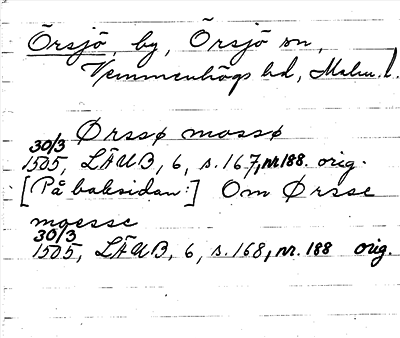 Örsjö, by, Örsjö sn,
Vemmenhögs hd, Malm. l.
Ørssø mossø
30/3 1505, LÄUB, 6, s. 167, nr 188. orig.
[På baksidan:] Om Ørsse
moesse
30/3 1505, LÄUB, 6, s. 168, nr. 188 orig.